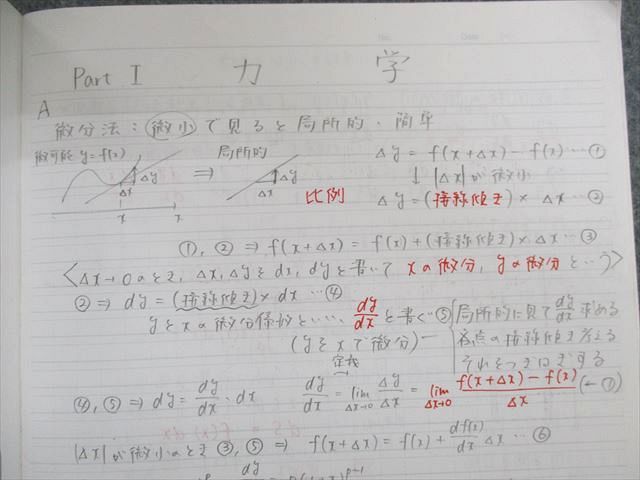 Part I 力 学
A
微分法：微小で見ると局所的・簡単
微可能 y=f(x) 局所的 Δy = f(x+Δx) - f(x) … ①
Δy Δx ⇒ Δy Δx ↓ |Δx|が微小
比例 Δy = (接線傾き) × Δx … ②
x x
①, ② ⇒ f(x+Δx) = f(x) + (接線傾き) × Δx … ③
〈Δx→0のとき, Δx, Δyを dx, dyと書いて xの微分, yの微分という〉
② ⇒ dy = (接線傾き) × dx … ④
yをxの微分係数と…… dy/dx と書く … ⑤
(yをxで微分)
局所的に見て dy/dx 求める
各点の接線傾き考える
それをつぎはぎする
定義
④, ⑤ ⇒ dy = dy/dx · dx dy/dx = lim Δx→0 Δy/Δx = lim Δx→0 f(x+Δx) - f(x) / Δx (←①)
|Δx|が微小のとき ③, ⑤ ⇒ f(x+Δx) = f(x) + df(x)/dx Δx … ⑥
dy